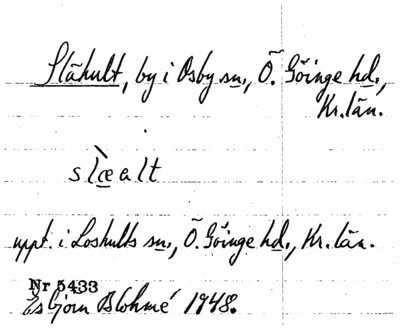 Slähult, by i Osby sn., Ö. Göinge hd.,
Kr. län.
slæ̀alt
uppt. i Loshults sn., Ö. Göinge hd., Kr. län.
Nr 5433
Esbjörn Blohmé 1948.